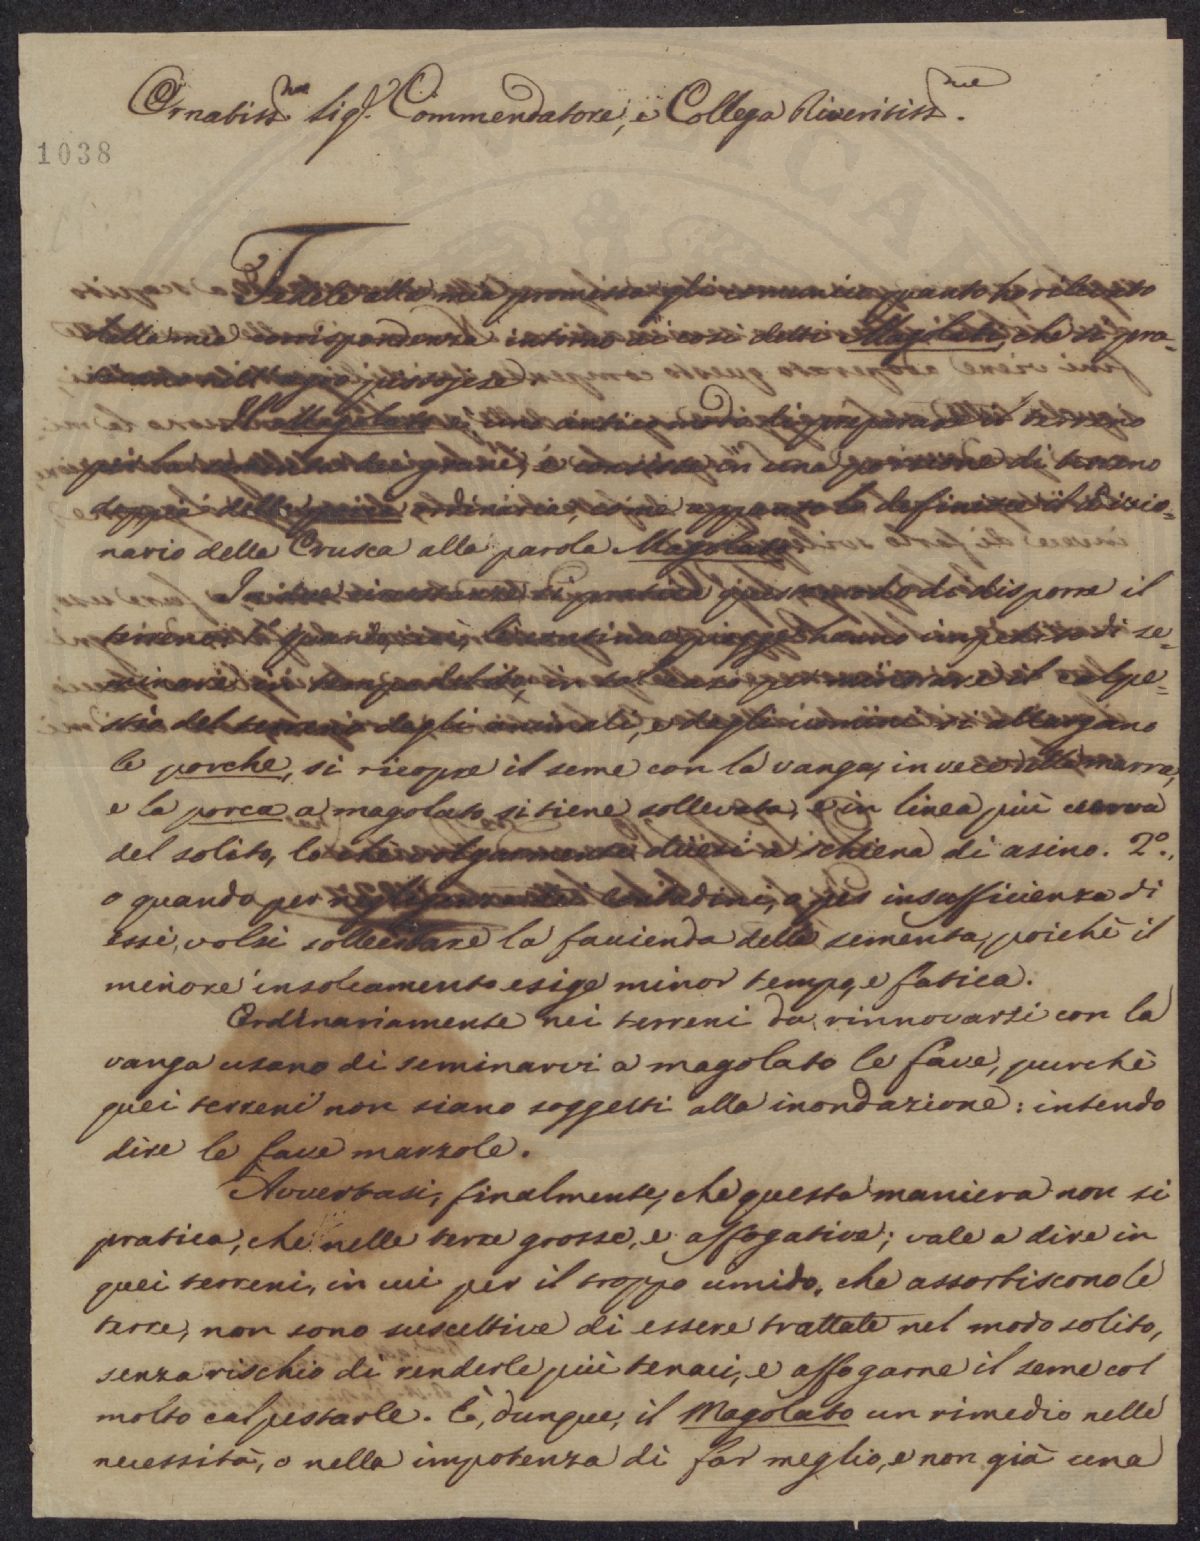 Ornatiss.mo Sig.r Commendatore, e Collega Riveritiss.mo
1038
Fedele alla mia promessa gli comunico quanto ho rilevato
dalla mia corrispondenza intorno ai così detti Magolati, che si pra-
ticano nell'agro pisano
Il Magolato è un antico modo di preparare il terreno
per la sementa dei grani, e consiste in una porzione di terreno
doppia della porca ordinaria, come appunto lo definisce il Dizio-
nario della Crusca alla parola Magolato.
In due circostanze si pratica questo modo di disporre il
terreno: 1.o quando, cioè, le continue piogge hanno impedito di se-
minare in tempo debito, in tal caso per minorare il calpe-
stio del terreno degli animali, e degli uomini si allargano
le porche, si ricopre il seme con la vanga, invece della marra,
e la porca a magolato si tiene sollevata, e in linea più curva
del solito, lo che volgarmente dicesi a schiena di asino. 2.o,
o quando per negligenza dei contadini, o per insufficienza di
essi, volsi sollecitare la faccienda della sementa, poichè il
minore insolcamento esige minor tempo, e fatica.
Ordinariamente nei terreni da rinnovarsi con la
vanga usano di seminarvi a magolato le fave, purchè
quei terreni non siano soggetti alla inondazione: intendo
dire le fave marzole.
Avvertasi, finalmente, che questa maniera non si
pratica, che nelle terre grosse, e affogative; vale a dire in
quei terreni, in cui per il troppo umido, che assorbiscono le
terre, non sono suscettive di essere trattate nel modo solito,
senza rischio di renderle più tenaci, e affogarne il seme col
molto calpestarle. È, dunque, il Magolato un rimedio nelle
necessità, o nella impotenza di far meglio, e non già una